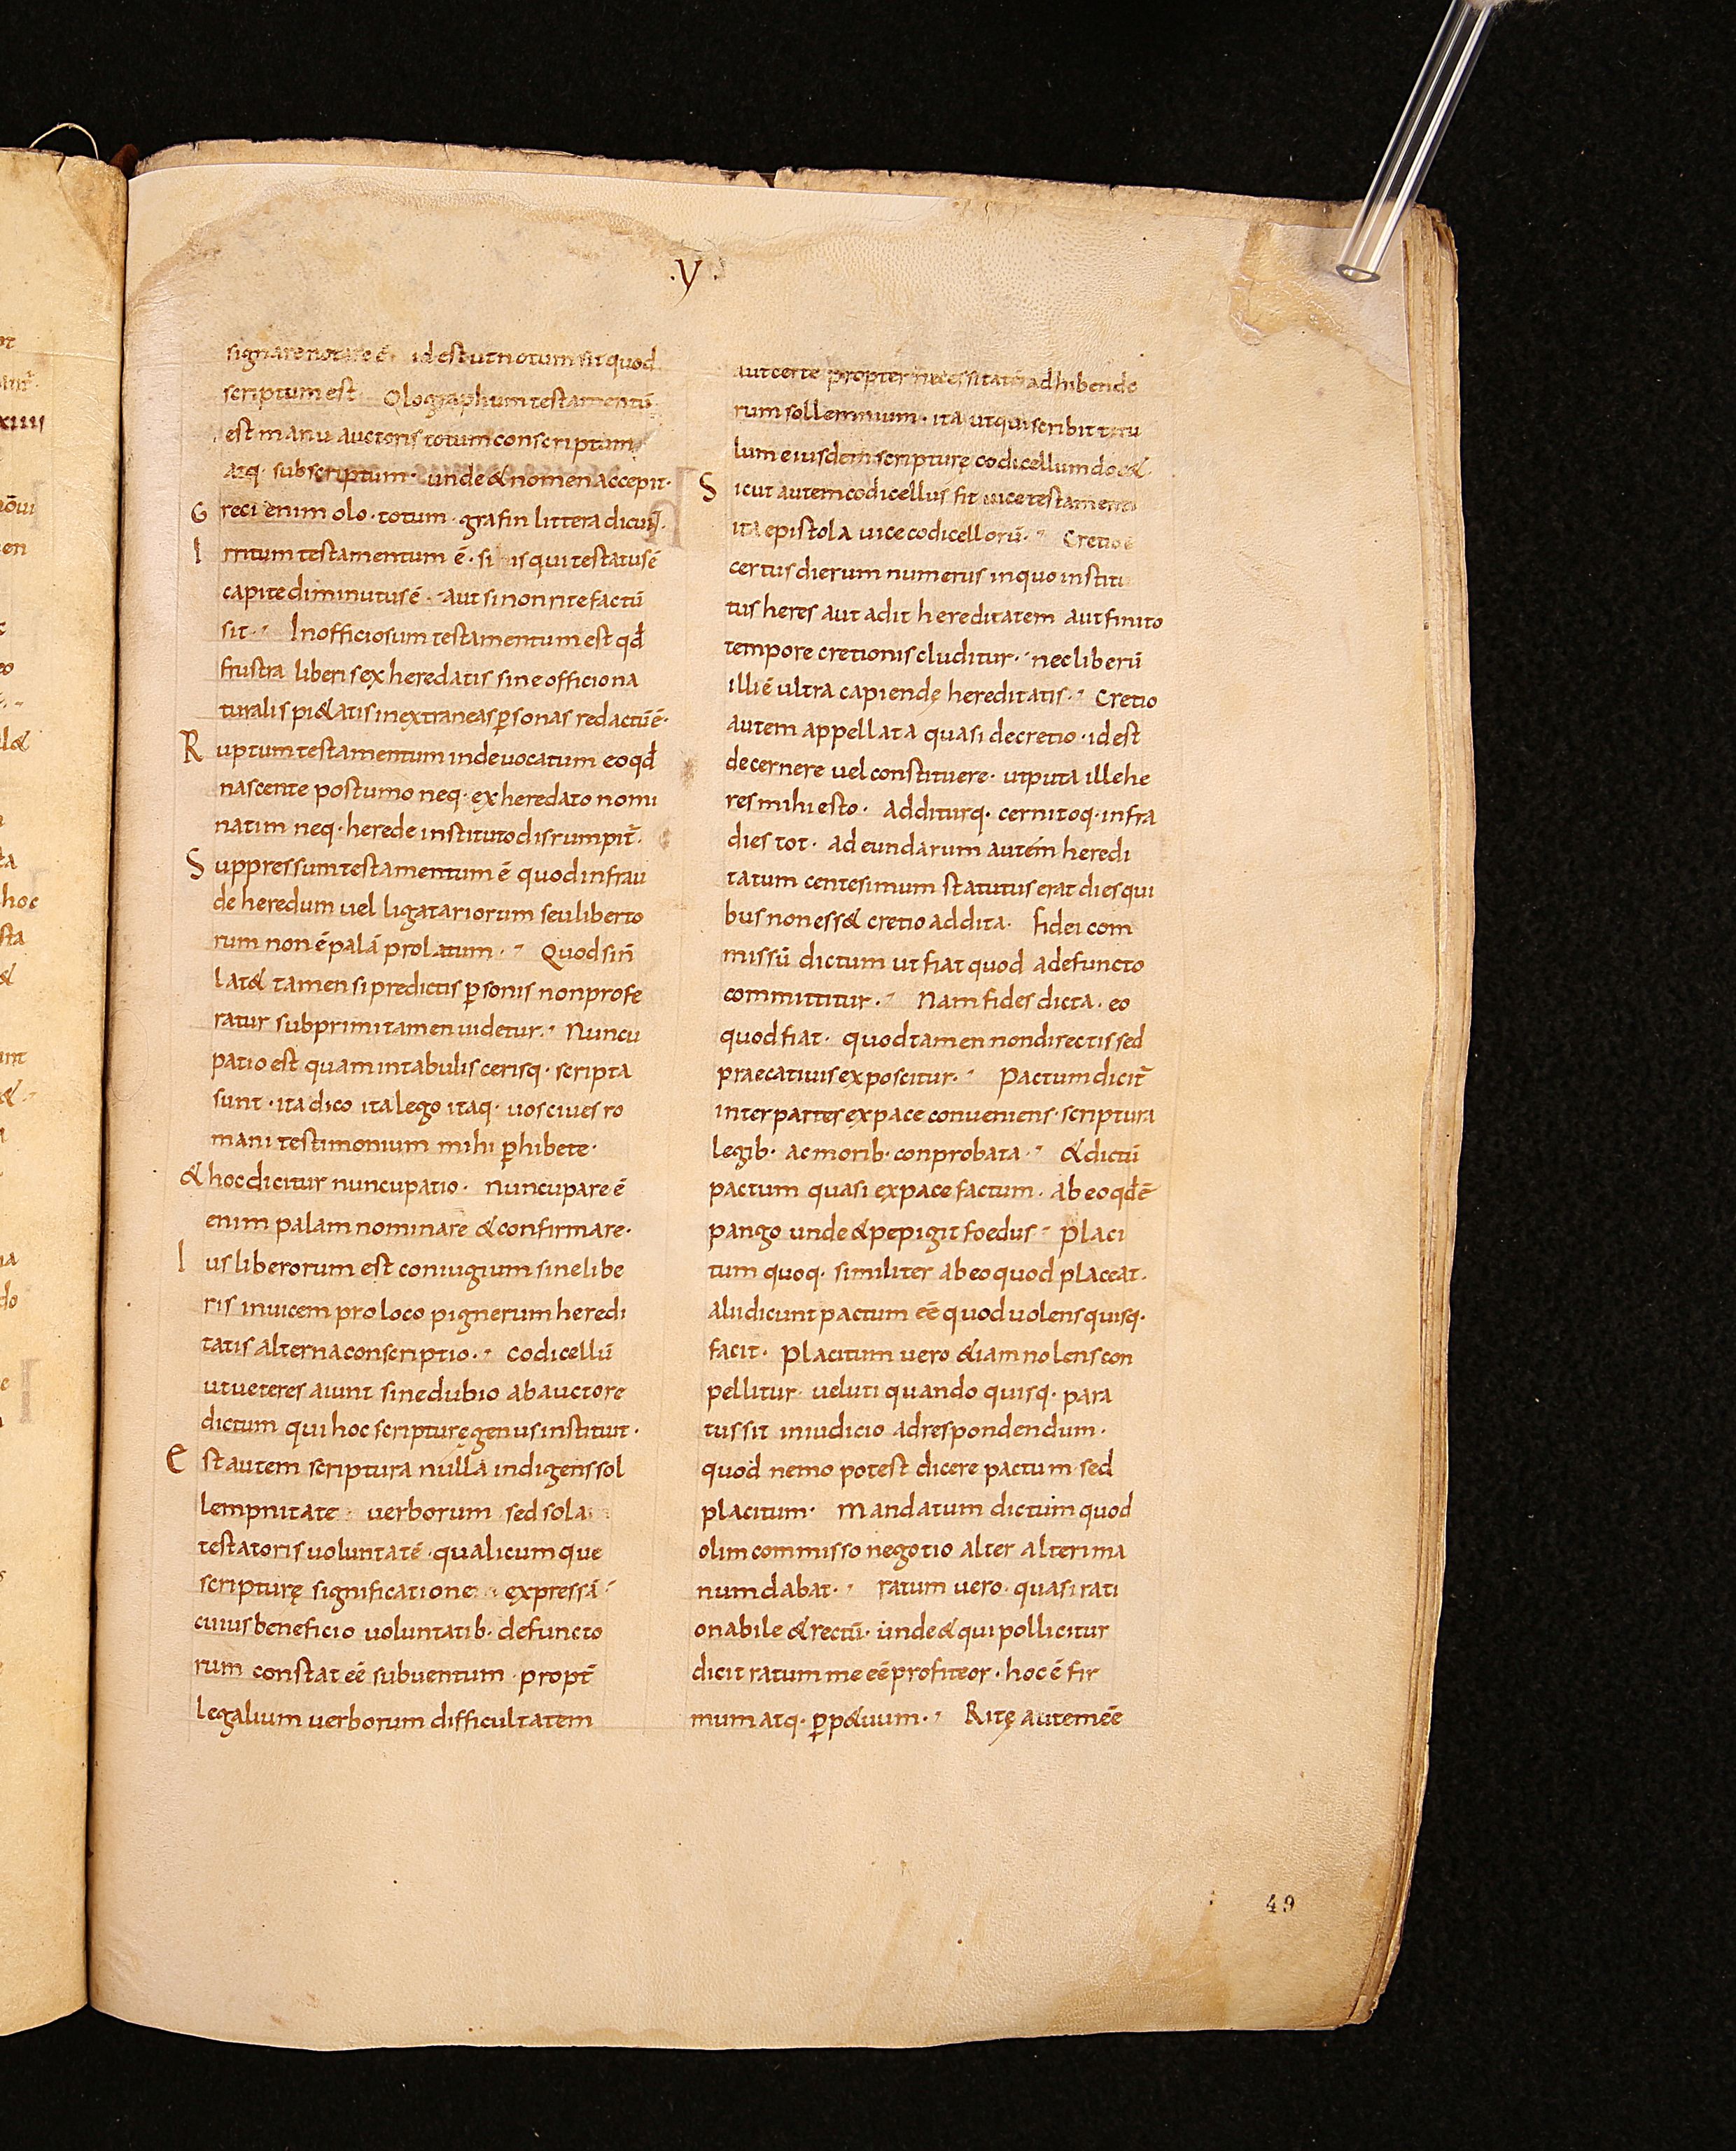 .V.
signare notare ē. id est ut notum sit quod
scriptum est. Olographum testamentū
est manu auctoris totum conscriptum
atq· subscriptum· unde & nomen accepit·
Greci enim olo· totum· grafin littera
Irritum testamentum ē· si is qui testatus ē
capite diminutus ē· aut si non rite factū
sit· Inofficiosum testamentum est qd̄
frustra liberis exheredatis sine officio na
turalis pi&atis in extraneas p̱sonas redactū ē·
Ruptum testamentum inde vocatum eo qd̄
nascente postumo neq· exheredato nomi
natim neq· herede instituto disrumpit̄·
Suppressum testamentum ē quod in frau
de heredum uel ligatariorum seu liberto
rum non ē palā prolatum· Quod si n̄
lat& tamen si predictis p̱sonis non profe
ratur subprimi tamen uidetur· Nuncu
patio est quam in tabulis cerisq· scripta
sunt· ita dico ita lego itaq· uos ciues ro
mani testimonium mihi p̱hibete·
& hoc dicitur nuncupatio· Nuncupare ē
enim palam nominare & confirmare·
Ius liberorum est coniugium sine libe
ris inuicem pro loco pignerum heredi
tatis alterna conscriptio· codicellū
ut ueteres aiunt sine dubio ab auctore
dictum qui hoc scripturę genus instituit·
Est autem scriptura nulla indigens sol
lempnitate· uerborum sed sola
testatoris uoluntatē· qualicumque
scripturę significatione expressā
cuius beneficio uoluntatib· defuncto
rum constat eē subuentum· propt̄
legalium uerborum difficultatem
aut certe propter necessitatē adhibende
rum sollemnium· ita ut qui scribit titu
lum eiusdem scripturę codicellum doc&·
Sicut autem codicellus fit uice testamenti
ita epistola uice codicellorū· Cretio ē
certus dierum numerus in quo institi
tus heres aut adit hereditatem aut finito
tempore cretionis cluditur· nec liberū
illi ē ultra capiendę hereditatis· Cretio
autem appellata quasi decretio· id est
decernere uel constituere· utputa ille he
res mihi esto· additurq· cernitoq· infra
dies tot· ad eundarum autem heredi
tatum centesimum statutus erat dies qui
bus non ess& cretio addita· fidei com
missū dictum ut fiat quod a defuncto
committitur· Nam fides dicta· eo
quod fiat· quod tamen non directis sed
praecatiuis exposcitur· Pactum dicit̄
inter partes ex pace conueniens· scriptura
legib· ac morib· conprobata· & dictū
pactum quasi ex pace factum· ab eo qd̄ ē
pango unde & pepigit foedus· placi
tum quoq· similiter ab eo quod placeat·
alii dicunt pactum eē quod uolens quisq·
facit· placitum uero &iam nolens con
pellitur· ueluti quando quisq· para
tus sit in iudicio ad respondendum·
quod nemo potest dicere pactum sed
placitum· Mandatum dictum quod
olim commisso negotio alter alteri ma
num dabat· ratum uero· quasi rati
onabile & rectū· unde & qui pollicitur
dicit ratum me eē profiteor· hoc ē fir
mum atq· p̱p&uum· Ritę autem eē
49